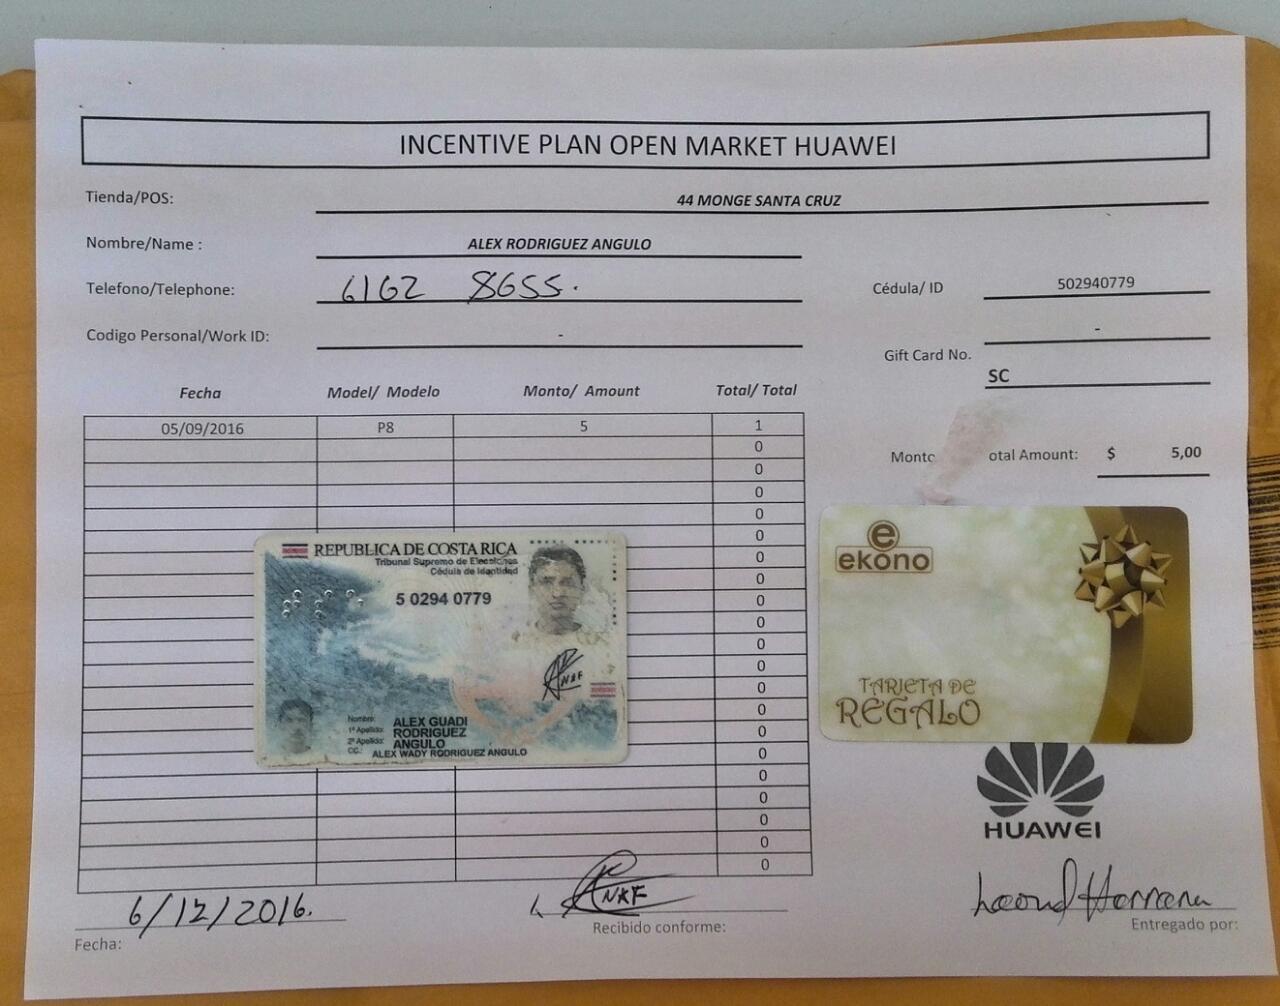 INCENTIVE PLAN OPEN MARKET HUAWEI
Tienda/POS: 44 MONGE SANTA CRUZ
Nombre/Name : ALEX RODRIGUEZ ANGULO
Telefono/Telephone: 6162 8655. Cédula/ ID 502940779
Codigo Personal/Work ID: - -
Gift Card No.
SC
Fecha Model/ Modelo Monto/ Amount Total/ Total
05/09/2016 P8 5 1
0
Monto otal Amount: $ 5,00
0
0
0
0
0
0
0
0
0
0
0
0
0
0
0
0
0
0
0
REPUBLICA DE COSTA RICA
Tribunal Supremo de Elecciones
Cédula de Identidad
5 0294 0779
Nombre: ALEX GUADI
1º Apellido: RODRIGUEZ
2º Apellido: ANGULO
CC.: ALEX WADY RODRIGUEZ ANGULO
e
ekono
TARJETA DE
REGALO
HUAWEI
6/12/2016.
Fecha:
Recibido conforme:
Entregado por: